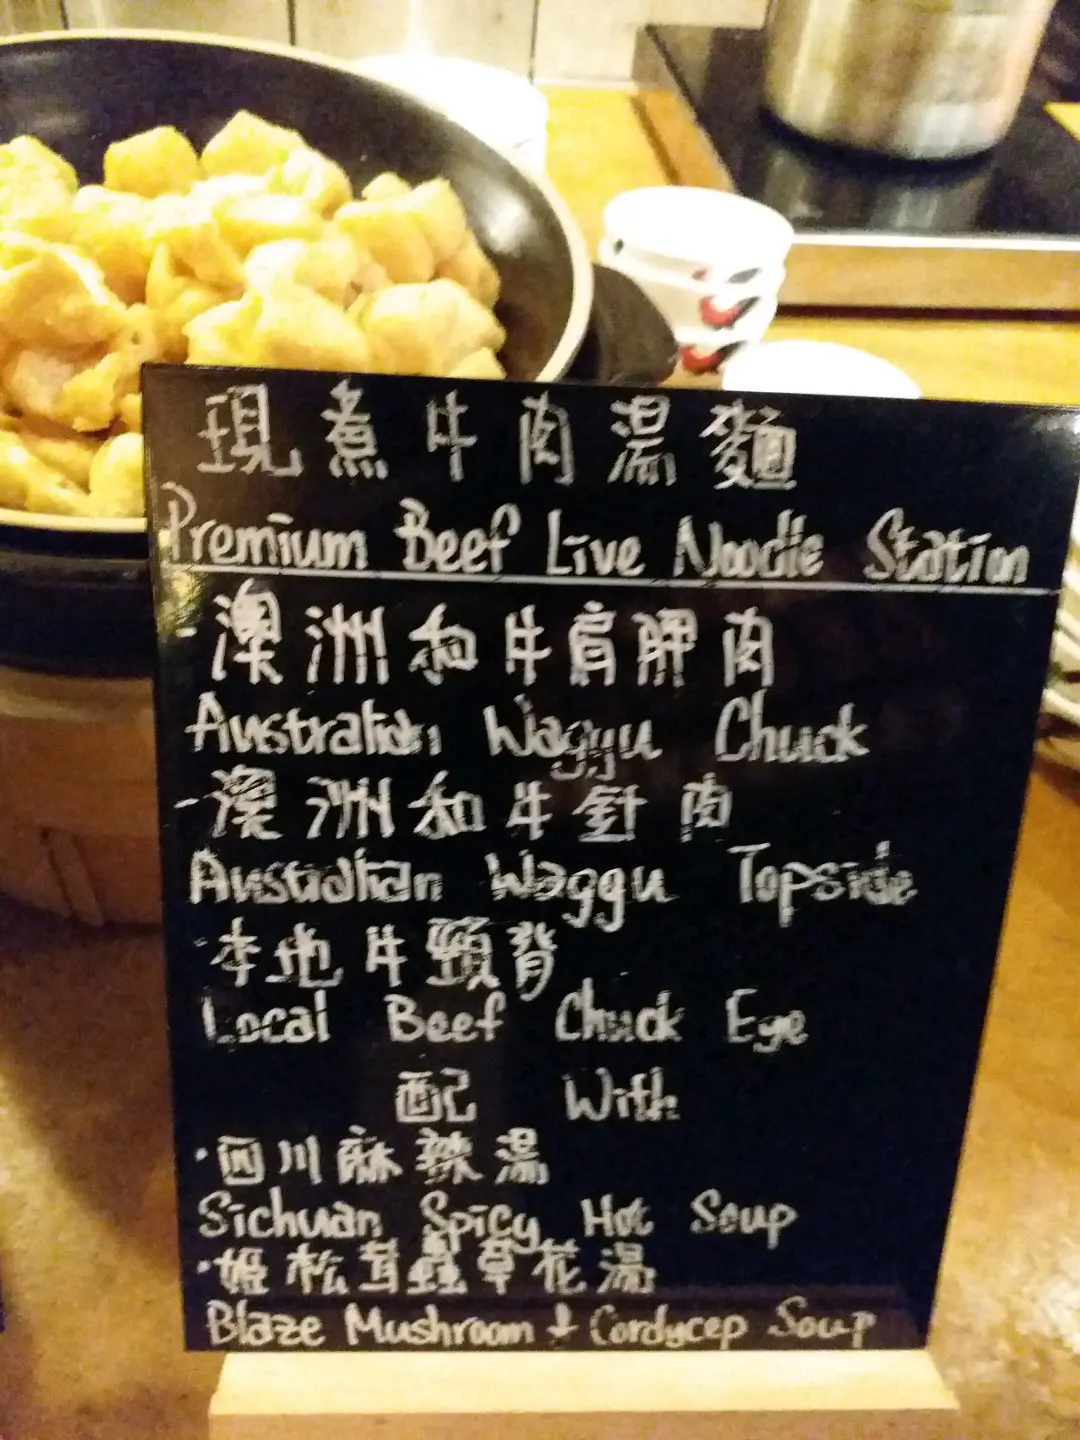 現煮牛肉濕麵
Premium Beef Live Noodle Station
·澳洲和牛肩胛肉
Australian Wagyu Chuck
-澳洲和牛針肉
Australian Waggu Topside
·本地牛頸背
Local Beef Chuck Eye
配 With
·四川麻辣湯
Sichuan Spicy Hot Soup
·姬松茸蟲草花湯
Blaze Mushroom & Cordycep Soup